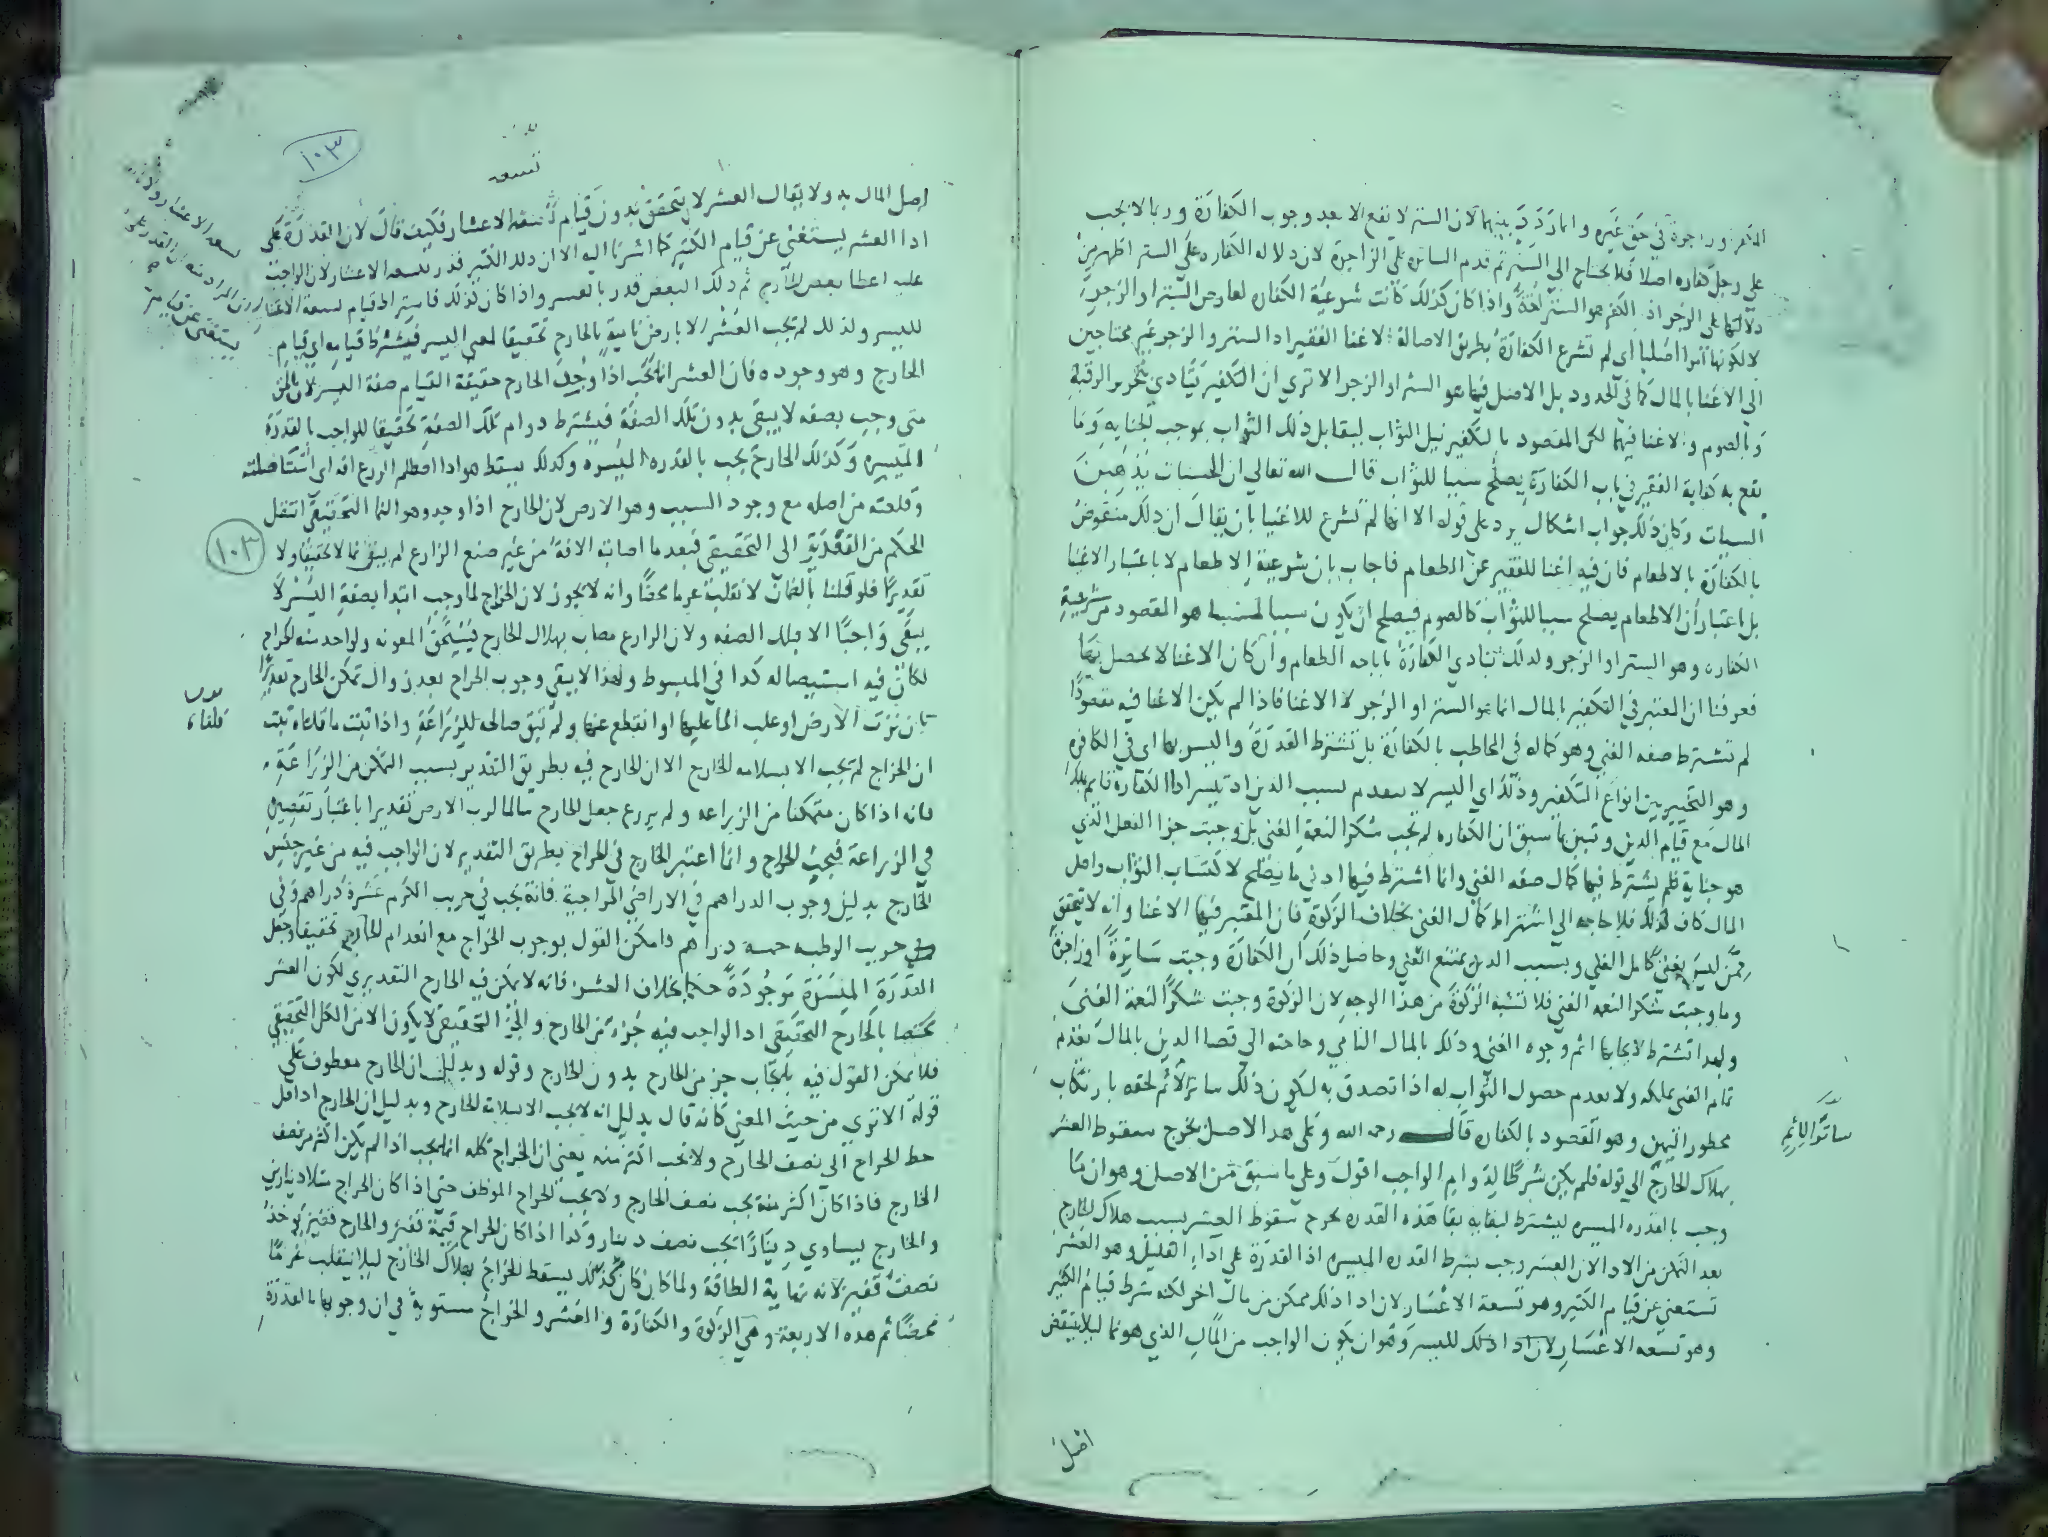 المكفر وزاجرة في حق غيره وانما ردد بينهما لان الستر لا يقع الا بعد وجوب الكفارة وربما لا يجب
على رجل كفاره اصلا فلا يحتاج الى الستر ثم قدم الساتره على الزاجرة لان دلاله الكفاره على الستر اظهر من
دلالتها على الزجر اذ الكفر هو الستر لغة واذا كان كذلك كانت شرعية الكفاره لعارض الستر او الزجر
لا لكونها امرا اصليا اى لم تشرع الكفارة بطريق الاصالة لاغنا الفقير اذ الستر والزجر غير محتاجين
الى الاغنا بالمال كما في الحدود بل الاصل فيها هو الستر او الزجر الا ترى ان التكفير يتادى بتحرير الرقبة
وبالصوم ولا غنا فيهما لكن المقصود بالتكفير نيل الثواب ليقابل ذلك الثواب بموجب الجنايه وما
يقع به كفاية الفقير في باب الكفارة يصلح سببا للثواب قال الله تعالى ان الحسنات يذهبن
السيات وكان ذلك جواب اشكال يرد على قوله الا انها لم تشرع للاغنيا بان يقال ان ذلك منقوض
بالكفارة بالاطعام فان فيه اغنا للفقير عن الطعام فاجاب بان شرعية الاطعام لا باعتبار الاغنا
بل اعتبار ان الاطعام يصلح سببا للثواب كالصوم فيصلح ان يكون سببا لما هو المقصود من شرعية
الكفاره وهو الستر او الزجر ولذلك تتادى الكفارة باباحه الطعام وان كان الاغنا لا يحصل بها
فعرفنا ان المعتبر في التكفير بالمال انما هو الستر او الزجر لا الاغنا فاذا لم يكن الاغنا فيه مقصودا
لم تشترط صفه الغنى وهو كماله في المخاطب بالكفارة بل تشترط القدرة واليسر بها اى في الكفاره
وهو التخيير بين انواع التكفير وذلك اي اليسر لا ينعدم بسبب الدين اذ تيسر ادا الكفارة قايم بملك
المال مع قيام الدين وتبين بما سبق ان الكفاره لم تجب شكرا لنعمة الغنى بل وجبت جزا الفعل الذي
هو جناية فلم يشترط فيها كمال صفه الغنى وانما اشترط فيها ادنى ما يصلح لاكتساب الثواب واصل
المال كاف لذلك فلا حاجه الى اشتراط كمال الغنى بخلاف الزكوة فان المعتبر فيها الاغنا وانه لا يتحقق
ممن ليس بغنى كامل الغنى وبسبب الدين يمتنع الغنى وحاصل ذلك ان الكفارة وجبت ساترة او زاجرة
وما وجبت شكرا لنعمه الغنى فلا تشبه الزكوة من هذا الوجه لان الزكوة وجبت شكرا لنعمة الغنى
ولهذا تشترط لايجابها اتم وجوه الغنى وذلك بالمال النامي وحاجته الى قضا الدين بالمال يعدم
تمام الغنى بملكه ولا يعدم حصول الثواب له اذا تصدق به ليكون ذلك ساترا لاثم لحقه بارتكاب
محظور اليمين وهو المقصود بالكفاره قال رحمه الله وعلى هذا الاصل يخرج سقوط العشر
بهلاك الخارج الى قوله فلم يكن شرطا لدوام الواجب اقول وعلى ما سبق من الاصل وهو ان ما
وجب بالقدره الميسره يشترط لبقايه بقا هذه القدره يخرج سقوط العشر بسبب هلاك الخارج
بعد التمكن من الادا لان العشر وجب بشرط القدره الميسره اذ القدرة على اداء القليل وهو العشر
تستغني عن قيام الكثير وهو تسعة الاعشار لان ادا ذلك ممكن من مال اخر لكنه شرط قيام الكثير
وهو تسعه الاعشار لان ادا ذلك لليسر وهو ان يكون الواجب من المال الذي هو نما ليلا ينتقض
اصل
ساترًا لاثمٍ
١٠٣
تسعه
اصل المال به ولا يقال العشر لا يتحقق بدون قيام تسعة الاعشار فكيف قال لان القدرة على
ادا العشر يستغنى عن قيام الكثير كما اشرنا اليه الا ان ذلك الكثير قدر بتسعه الاعشار لان الواجب
عليه اعطا بعض الخارج ثم ذلك البعض قدر بالعشر واذا كان كذلك فاشتراط قيام تسعة الاعشار
لليسر ولذلك لم يجب العشر الا بارض نامية بالخارج تحقيقا لمعنى اليسر فيشترط قيامه اي قيام
الخارج وهو وجوده فان العشر انما يجب اذا وجد الخارج حقيقة القيام صفة اليسر لان الحق
متى وجب بصفه لا يبقى بدون تلك الصفة فيشترط دوام تلك الصفة تحقيقا للواجب بالقدرة
الميسره وكذلك الخارج يجب بالقدره الميسره وكذلك يسقط هو اذا اصطلم الزرع افه اى استاصلته
وقلعته من اصله مع وجود السبب وهو الارض لان الخارج اذا وجد وهو النما الحقيقى انتقل
الحكم من التقديرى الى التحقيقي فبعد ما اصابته الافة من غير صنع الزارع لم يبق نما لا تحقيقا ولا
١٠٣
تقديرا فلو قلنا بالضمان لانقلب غرما محضا وانه لا يجوز لان الخراج لما وجب ابتدا بصفة اليسر لا
يبقى واجبا الا بتلك الصفه ولان الزارع مصاب بهلاك الخارج فيستحق المعونه ولو اخذ منه الخراج
لكان فيه استيصاله كذا في المبسوط ولهذا لا يبقى وجوب الخراج بعد زوال تمكن الخارج تقديرا
بان نزت الارض او غلب الما عليها او انقطع عنها ولم تبق صالحه للزراعة واذا ثبت ما قلناه ثبت
ان الخراج لم يجب الا بسلامه الخارج الا ان الخارج فيه بطريق التقدير بسبب التمكن من الزراعة
فانه اذا كان متمكنا من الزراعه ولم يزرع جعل الخارج سالما لرب الارض تقديرا باعتبار تقصيره
في الزراعة فيجب الخراج وانما اعتبر الخارج في الخراج بطريق التقدير لان الواجب فيه من غير جنس
الخارج بدليل وجوب الدراهم في الاراضي الخراجية فانه يجب في جريب الكرم عشرة دراهم وفي
جريب الرطبه خمسه دراهم فامكن القول بوجوب الخراج مع انعدام الخارج تحقيقا وجعل
القدرة الميسرة موجودة حكما بخلاف العشر فانه لا يمكن فيه الخارج التقديري لكون العشر
مختصا بالخارج التحقيقى اذ الواجب فيه جزء من الخارج والجزء التحقيقى لا يكون الا من الكل التحقيقى
فلا يمكن القول فيه بايجاب جز من الخارج بدون الخارج وقوله وبدليل ان الخارج معطوف على
قوله الا ترى من حيث المعنى كانه قال بدليل انه لا يجب الا بسلامة الخارج وبدليل ان الخارج اذا قل
حط الخراج الى نصف الخارج ولا يجب اكثر منه يعني ان الخراج كله انما يجب اذا لم يكن اكثر من نصف
الخارج فاذا كان اكثر منه يجب نصف الخارج ولا يجب الخراج الموظف حتى اذا كان الخراج مثلا دينارين
والخارج يساوي دينارا يجب نصف دينار وكذا اذا كان الخراج قيمة قفيز والخارج قفيز يوخذ
نصف قفيز لانه نهاية الطاقة ولما كان كذلك يسقط الخراج بهلاك الخارج ليلا ينقلب غرما
محضا ثم هذه الاربعة وهي الزكوة والكفارة والعشر والخراج مستوية في ان وجوبها بالقدرة
قلناه
يستغنى عن قيام